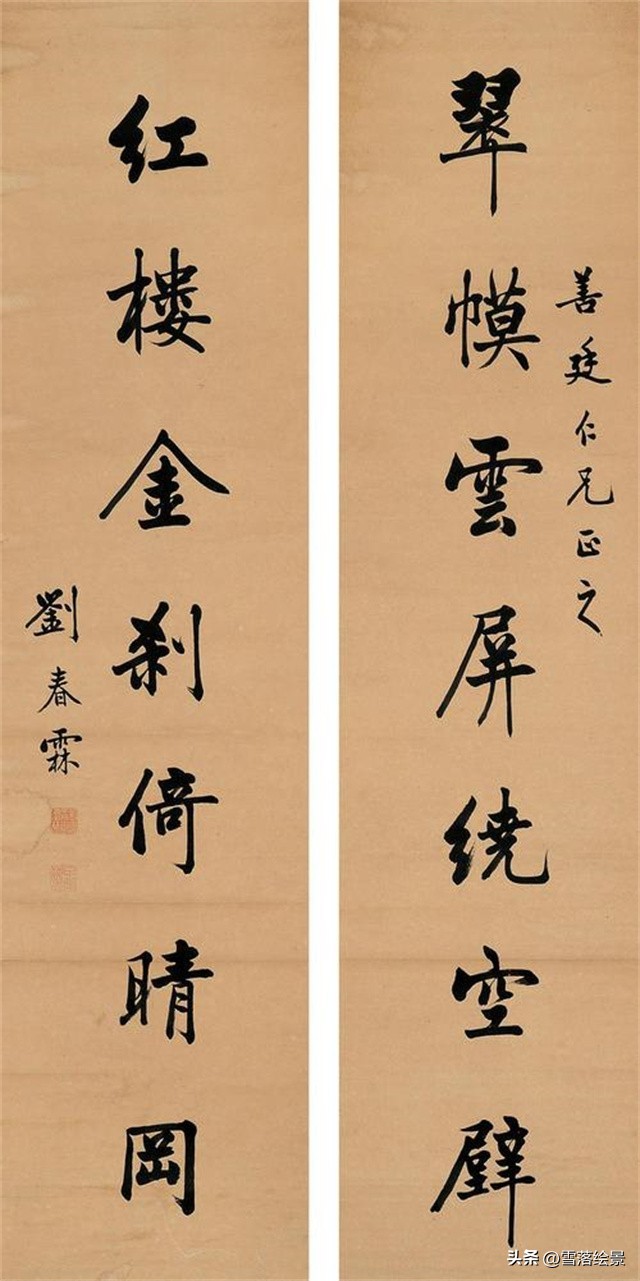 善廷仁兄正之
翠幙雲屏繞空壁
紅樓金刹倚晴岡
劉春霖
头条 @雪落绘景